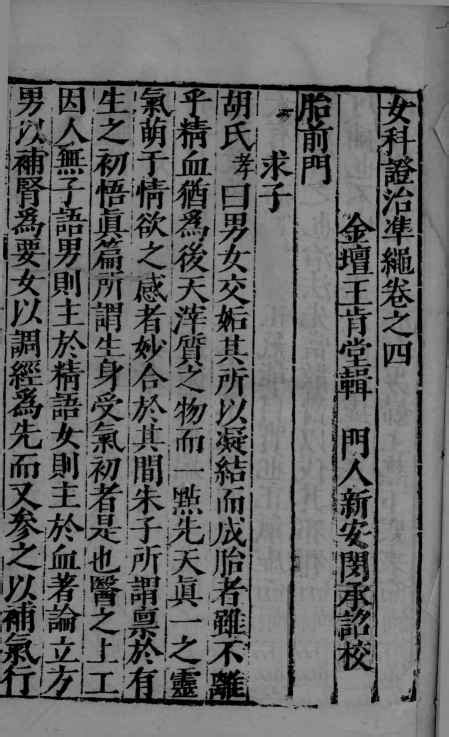 女科證治準繩卷之四
金壇王肯堂輯　門人新安閔承詔校
胎前門
求子
胡氏孝曰男女交姤其所以凝結而成胎者雖不離
乎精血猶為後天滓質之物而一㸃先天眞一之靈
氣萌于情欲之感者妙合於其間朱子所謂禀於有
生之初悟眞篇所謂生身受氣初者是也醫之上工
因人無子語男則主於精語女則主於血著論立方
男以補腎為要女以調經為先而又參之以補氣行